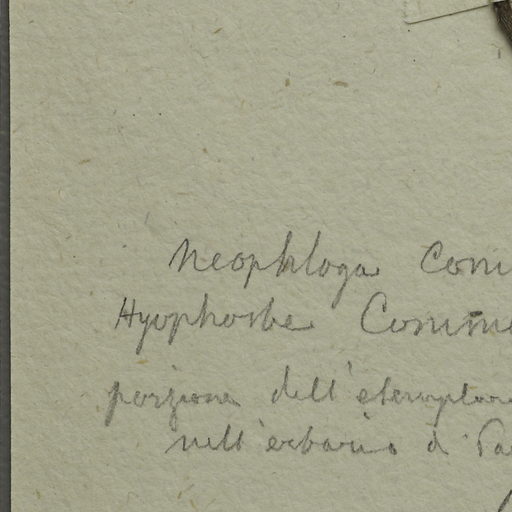 Neophloga Com
Hyophorbe Comme
porzione dell'esemplare
nell'erbario di Pa